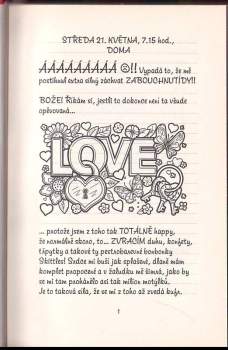 STŘEDA 21. KVĚTNA, 7.15 hod.,
DOMA
ÁÁÁÁÁÁÁÁÁ ☺!! Vypadá to, že mě
postihnul extra silný záchvat ZABOUCHNUTÍDY!!
BOŽE! Říkám si, jestli to dokonce není ta všude
opěvovaná...
LOVE
... protože jsem z toho tak TOTÁLNĚ happy,
že normálně skoro, to... ZVRACÍM duhu, konfety,
třpytky a takové ty pestrobarevné bonbonky
Skittles! Srdce mi buší jak splašené, dlaně mám
komplet propocené a v žaludku mě šimrá, jako by
se mi tam prohánělo asi tak milion motýlků.
Je to taková síla, že se mi z toho až zvedá kufr.
1